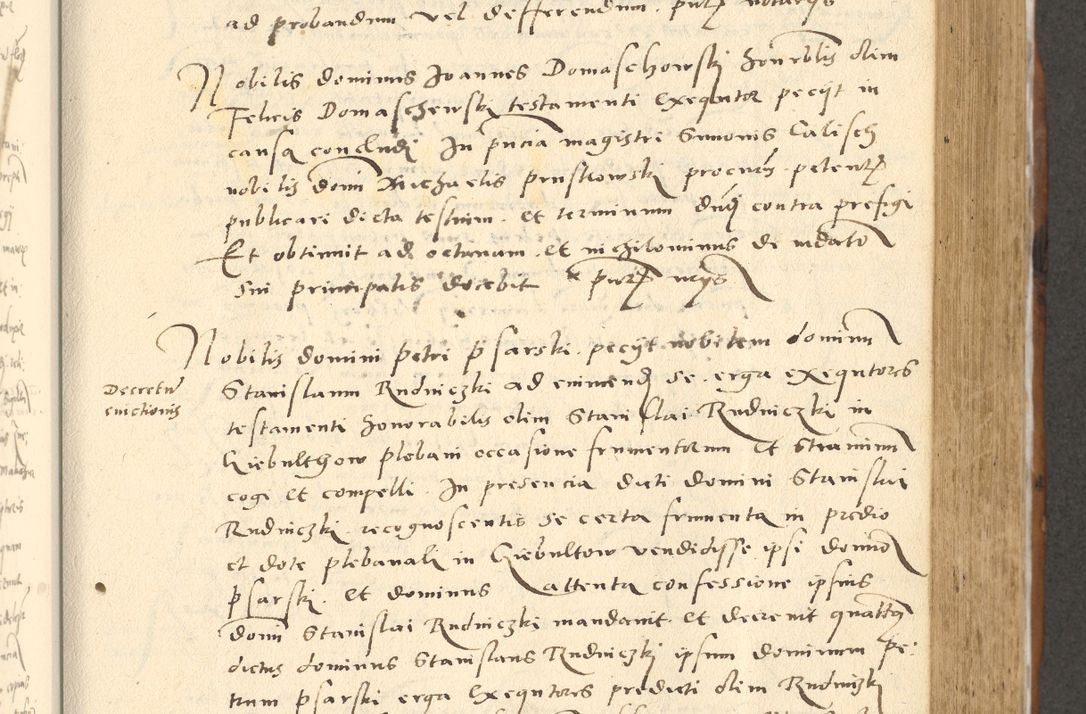 ad probandum vel defferendum. pntz notarijs
Nobilis dominus Joannes Domaschowskj honorblis olim
Felicis Domaschewskj testamenti exequtor pecijt in
causa concludj In pncia magistri Simonis Calisch
nobilis domi Michaelis Pruskowskj procurm. petentz
publicari dicta testium. et terminum dudj contra prefigi
Et obtinuit ad octauam. et nichilominus de mdato
sui principalis docebit
Nobilis domini Petri Psarski. pecijt nobilem dominum
Decretum
euictionis
Stanislaum Rudniczki ad euincendj se erga exequtores
testamenti honorabilis olim Stanislai Rudniczki in
Giebulthow plebani occasione frumentorum et straminum
cogi et compelli. In presencia dicti domini Stanislai
Rudniczkj recognoscentis se certa frumenta in predio
et dote plebanali in Giebultow vendidisse ipsi domino
Psarskj. Et dominus attenta confessione ipsius
domi Stanislai Rudniczkj mandauit et decreuit quattenus
dictus dominus Stanislaus Rudniczkj ipsum dominum Pe:
trum Psarski erga exequtores predicti olim Rudniczkj